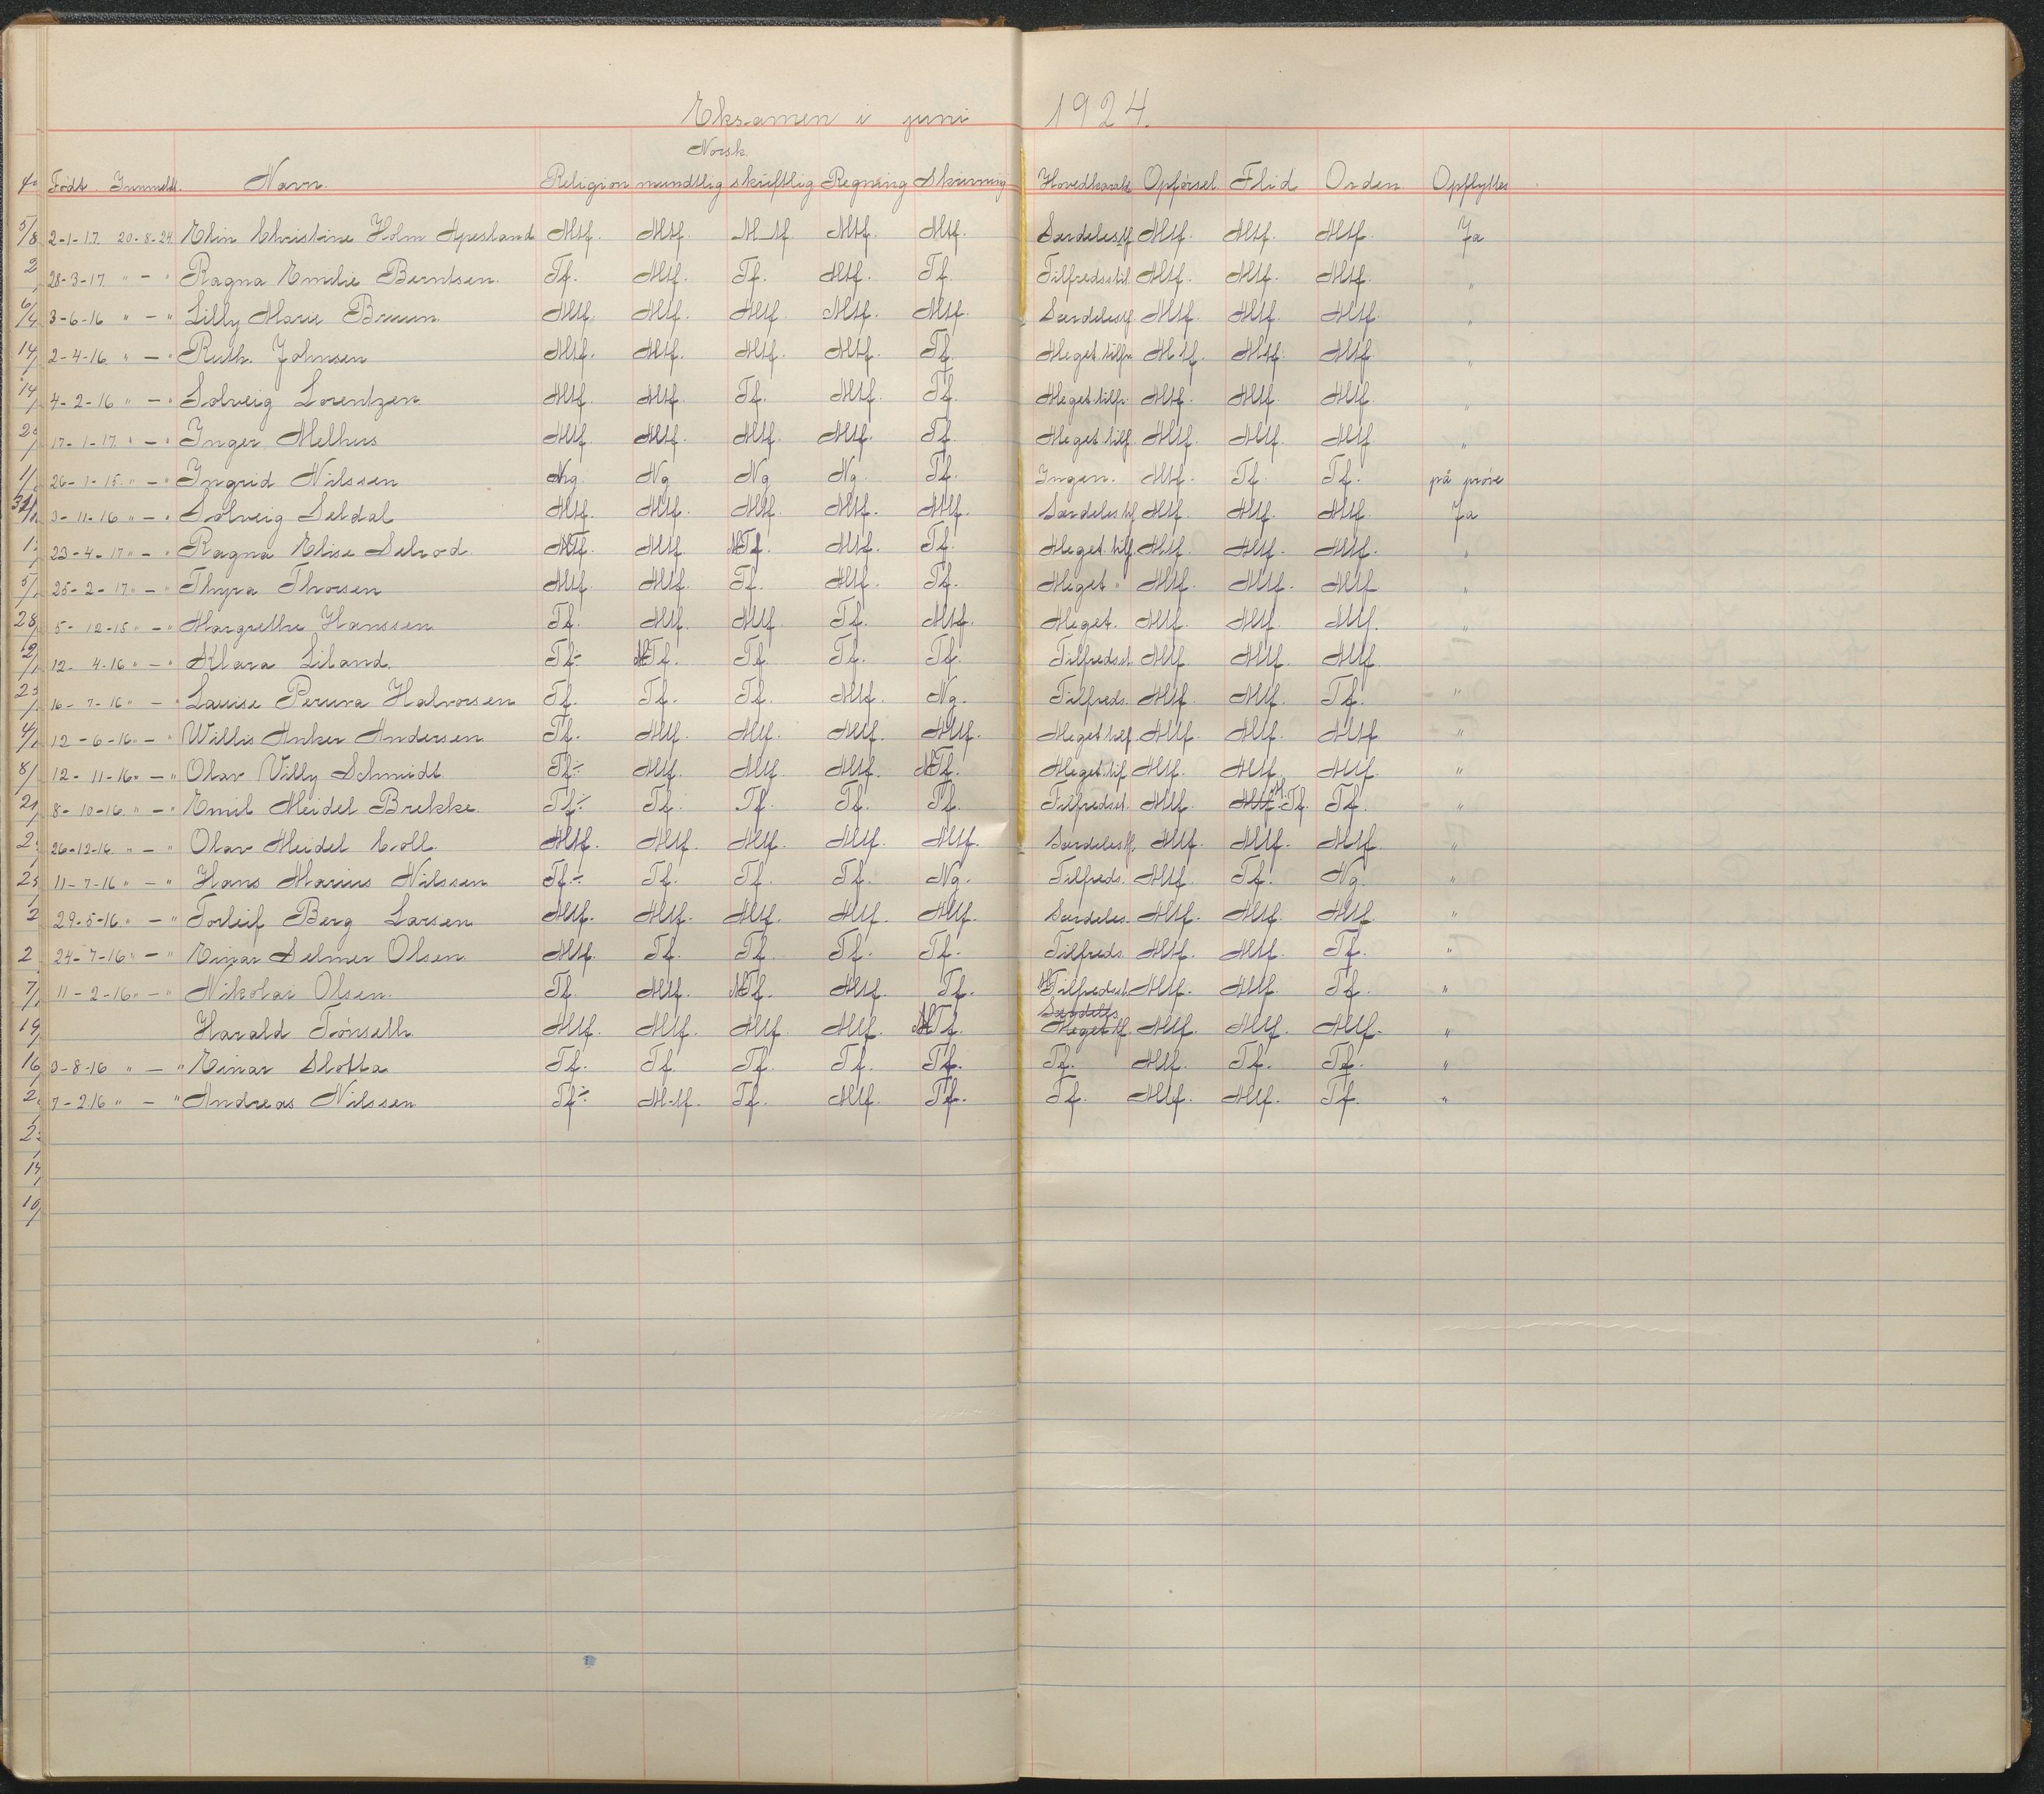 Eksamen i juni 1924.
Norsk
Født. Innmeldt. Navn. Religion mundtlig skriftlig Regning Skrivning Hovedkarakt. Opførsel Flid Orden Opflyttes
2-1-17. 20-8-24 Elin Christine Holm Apesland Mtf. Mtf. Mtf. Mtf. Mtf. Særdeles tf. Mtf. Mtf. Mtf. Ja
28-3-17. " - " Ragna Emilie Berntsen. Tf. Mtf. Tf. Mtf. Tf. Tilfredsstil. Mtf. Mtf. Mtf. "
3-6-16 " - " Lilly Marie Bruun Mtf. Mtf. Mtf. Mtf. Mtf. Særdeles tf. Mtf. Mtf. Mtf. "
2-4-16. " - " Ruth Johnsen Mtf. Mtf. Mtf. Mtf. Tf. Meget tilfr. Mtf. Mtf. Mtf. "
4-2-16 " - " Solveig Lorentzen Mtf. Mtf. Tf. Mtf. Tf. Meget tilfr. Mtf. Mtf. Mtf. "
17-1-17. " - " Inger Melhus Mtf. Mtf. Mtf. Mtf. Tf. Meget tilf. Mtf. Mtf. Mtf "
26-1-15. " - " Ingrid Nilssen Ng. Ng Ng Ng. Tf. Ingen. Mtf. Tf. Tf. på prøve
3-11-16 " - " Solveig Seldal Mtf. Mtf. Mtf. Mtf. Mtf. Særdeles tf Mtf. Mtf. Mtf Ja
23-4-17 " - " Ragna Elise Selvod MTf. Mtf. MTf. Mtf. Tf. Meget tilf. Mtf. Mtf. Mtf. "
25-2-17 " - " Thyra Thorsen Mtf. Mtf. Tf. Mtf. Tf. Meget " Mtf. Mtf. Mtf "
5-12-15 " - " Margrethe Hanssen Tf. Mtf. Mtf. Tf. Mtf. Meget. Mtf. Mtf. Mtf. "
12-4-16 " - " Klara Liland. Tf÷ MTf. Tf. Tf. Tf. Tilfredsst. Mtf. Mtf. Mtf
16-7-16 " - " Louise Halvorsen Tf. Tf. Tf. Mtf. Ng. Tilfreds. Mtf. Mtf. Tf. "
12-6-16 " - " Willis Anker Andersen Tf. Mtf. Mtf. Mtf. Mtf. Meget tilf. Mtf. Mtf. Mtf "
12-11-16 " - " Olav Villy Schmidt Tf÷ Mtf. Mtf. Mtf. MTf. Meget tilf Mtf. Mtf. Mtf. "
8-10-16. " - " Emil Meidel Brekke. Tf÷ Tf. Tf. Tf. Tf. Tilfredsst. Mtf. Mtf. Tf. Tf. "
26-12-16. " - " Olav Meidel Coll. Mtf. Mtf. Mtf. Mtf. Mtf. Særdeles tf. Mtf. Mtf. Mtf. "
11-7-16 " - " Hans Marius Nilssen Tf÷ Tf. Tf. Tf. Ng. Tilfreds. Mtf. Tf. Ng. "
29-5-16 " - " Torleif Berg Larsen Mtf. Mtf. Mtf. Mtf. Mtf. Særdeles. Mtf. Mtf. Mtf. "
24-7-16 " - " Einar Selmer Olsen. Mtf. Tf. Tf. Tf. Tf. Tilfreds. Mtf. Mtf. Tf. "
11-2-16 " - " Nikolai Olsen. Tf. Mtf. MTf. Mtf. Tf. Tilfredsst. Mtf. Mtf. Tf. "
Særdeles
Harald Tønseth Mtf. Mtf. Mtf. Mtf. MTf. Meget tf. Mtf. Mtf. Mtf. "
3-8-16 " - " Einar Slotta Tf. Tf. Tf. Tf. Tf. Tf. Mtf. Tf. Tf. "
7-2-16 " - " Andreas Nilssen Tf÷ Mtf. Tf. Mtf. Tf. Tf. Mtf. Mtf. Tf. "